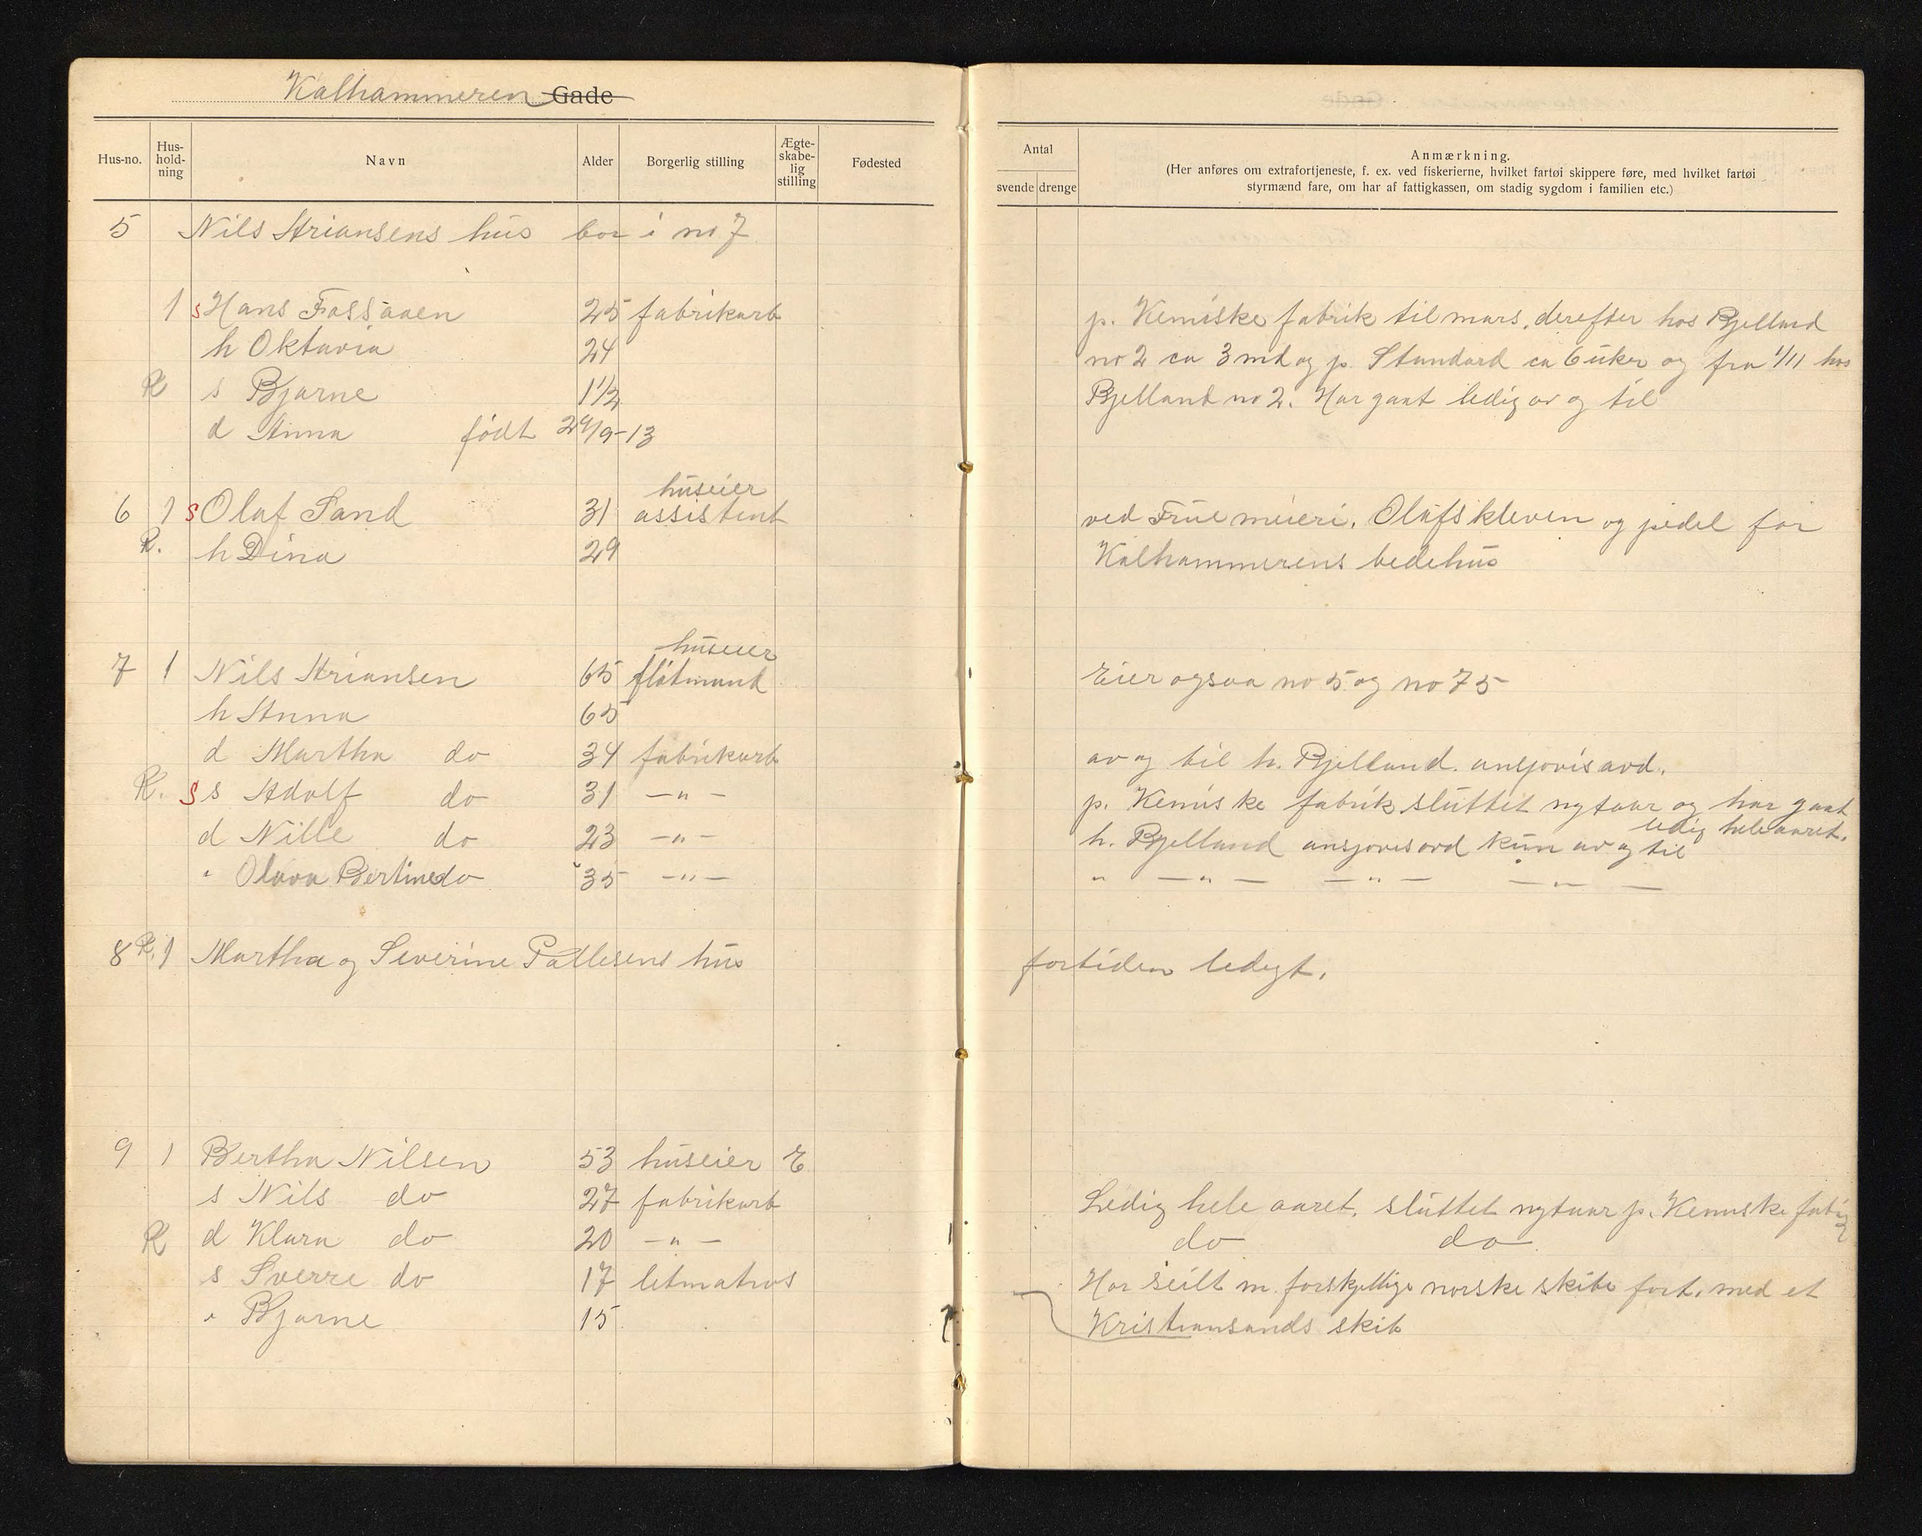 Kalhammeren Gade
Hus-no. Hus-hold-ning Navn Alder Borgerlig stilling Ægte-skabe-lig stilling Fødested
Antal svende drenge
Anmærkning.
(Her anføres om extrafortjeneste, f. ex. ved fiskerierne, hvilket fartøi skippere føre, med hvilket fartøi
styrmænd fare, om har af fattigkassen, om stadig sygdom i familien etc.)
5 Nils Ariansens hus bor i no 7
1 s Hans Fossaaen 25 fabrikarb p. Kemiske fabrik til mars, derefter hos Bjelland
h Oktavia 24 no 2 ca 3 md og p. Standard ca 6 uker og fra 1/11 hos
R s Bjarne 1 1/2 Bjelland no 2. Har gaat ledig av og til
d Anna født 29/9-13
huseier
6 1 s Olaf Sand 31 assistent ved Frue meieri, Olafskleven og pedel for
R. h Dina 29 Kalhammerens bedehus
huseier
7 1 Nils Ariansen 65 fløtmand Eier ogsaa no 5 og no 75
h Anna 65
d Martha do 34 fabrikarb av og til h. Bjelland. ansjovisavd.
R. s s Adolf do 31 — „ — p. Kemiske fabrik sluttet nytaar og har gaat
ledig hele aaret.
d Nille do 23 — „ — h. Bjelland ansjovisavd kun av og til
„ Olava Bertine do 35 — „ — „ — „ — — „ — — „ —
8 R. 1 Martha og Severine Pallesens hus fortiden ledigt.
9 1 Bertha Nilsen 53 huseier E
s Nils do 27 fabrikarb Ledig hele aaret. sluttet nytaar p. Kemiske fabrik
R d Klara do 20 — „ — do do
s Sverre do 17 letmatros Har seilt m. forskjellige norske skibe fort. med et
„ Bjarne 15 Kristiansands skib